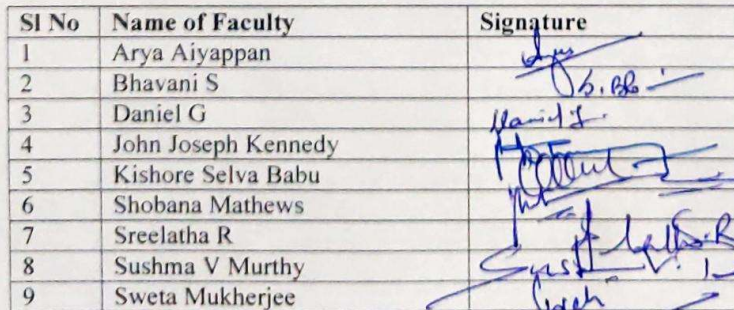 Sl No Name of Faculty Signature
1 Arya Aiyappan
2 Bhavani S
3 Daniel G Daniel G.
4 John Joseph Kennedy
5 Kishore Selva Babu
6 Shobana Mathews
7 Sreelatha R
8 Sushma V Murthy
9 Sweta Mukherjee